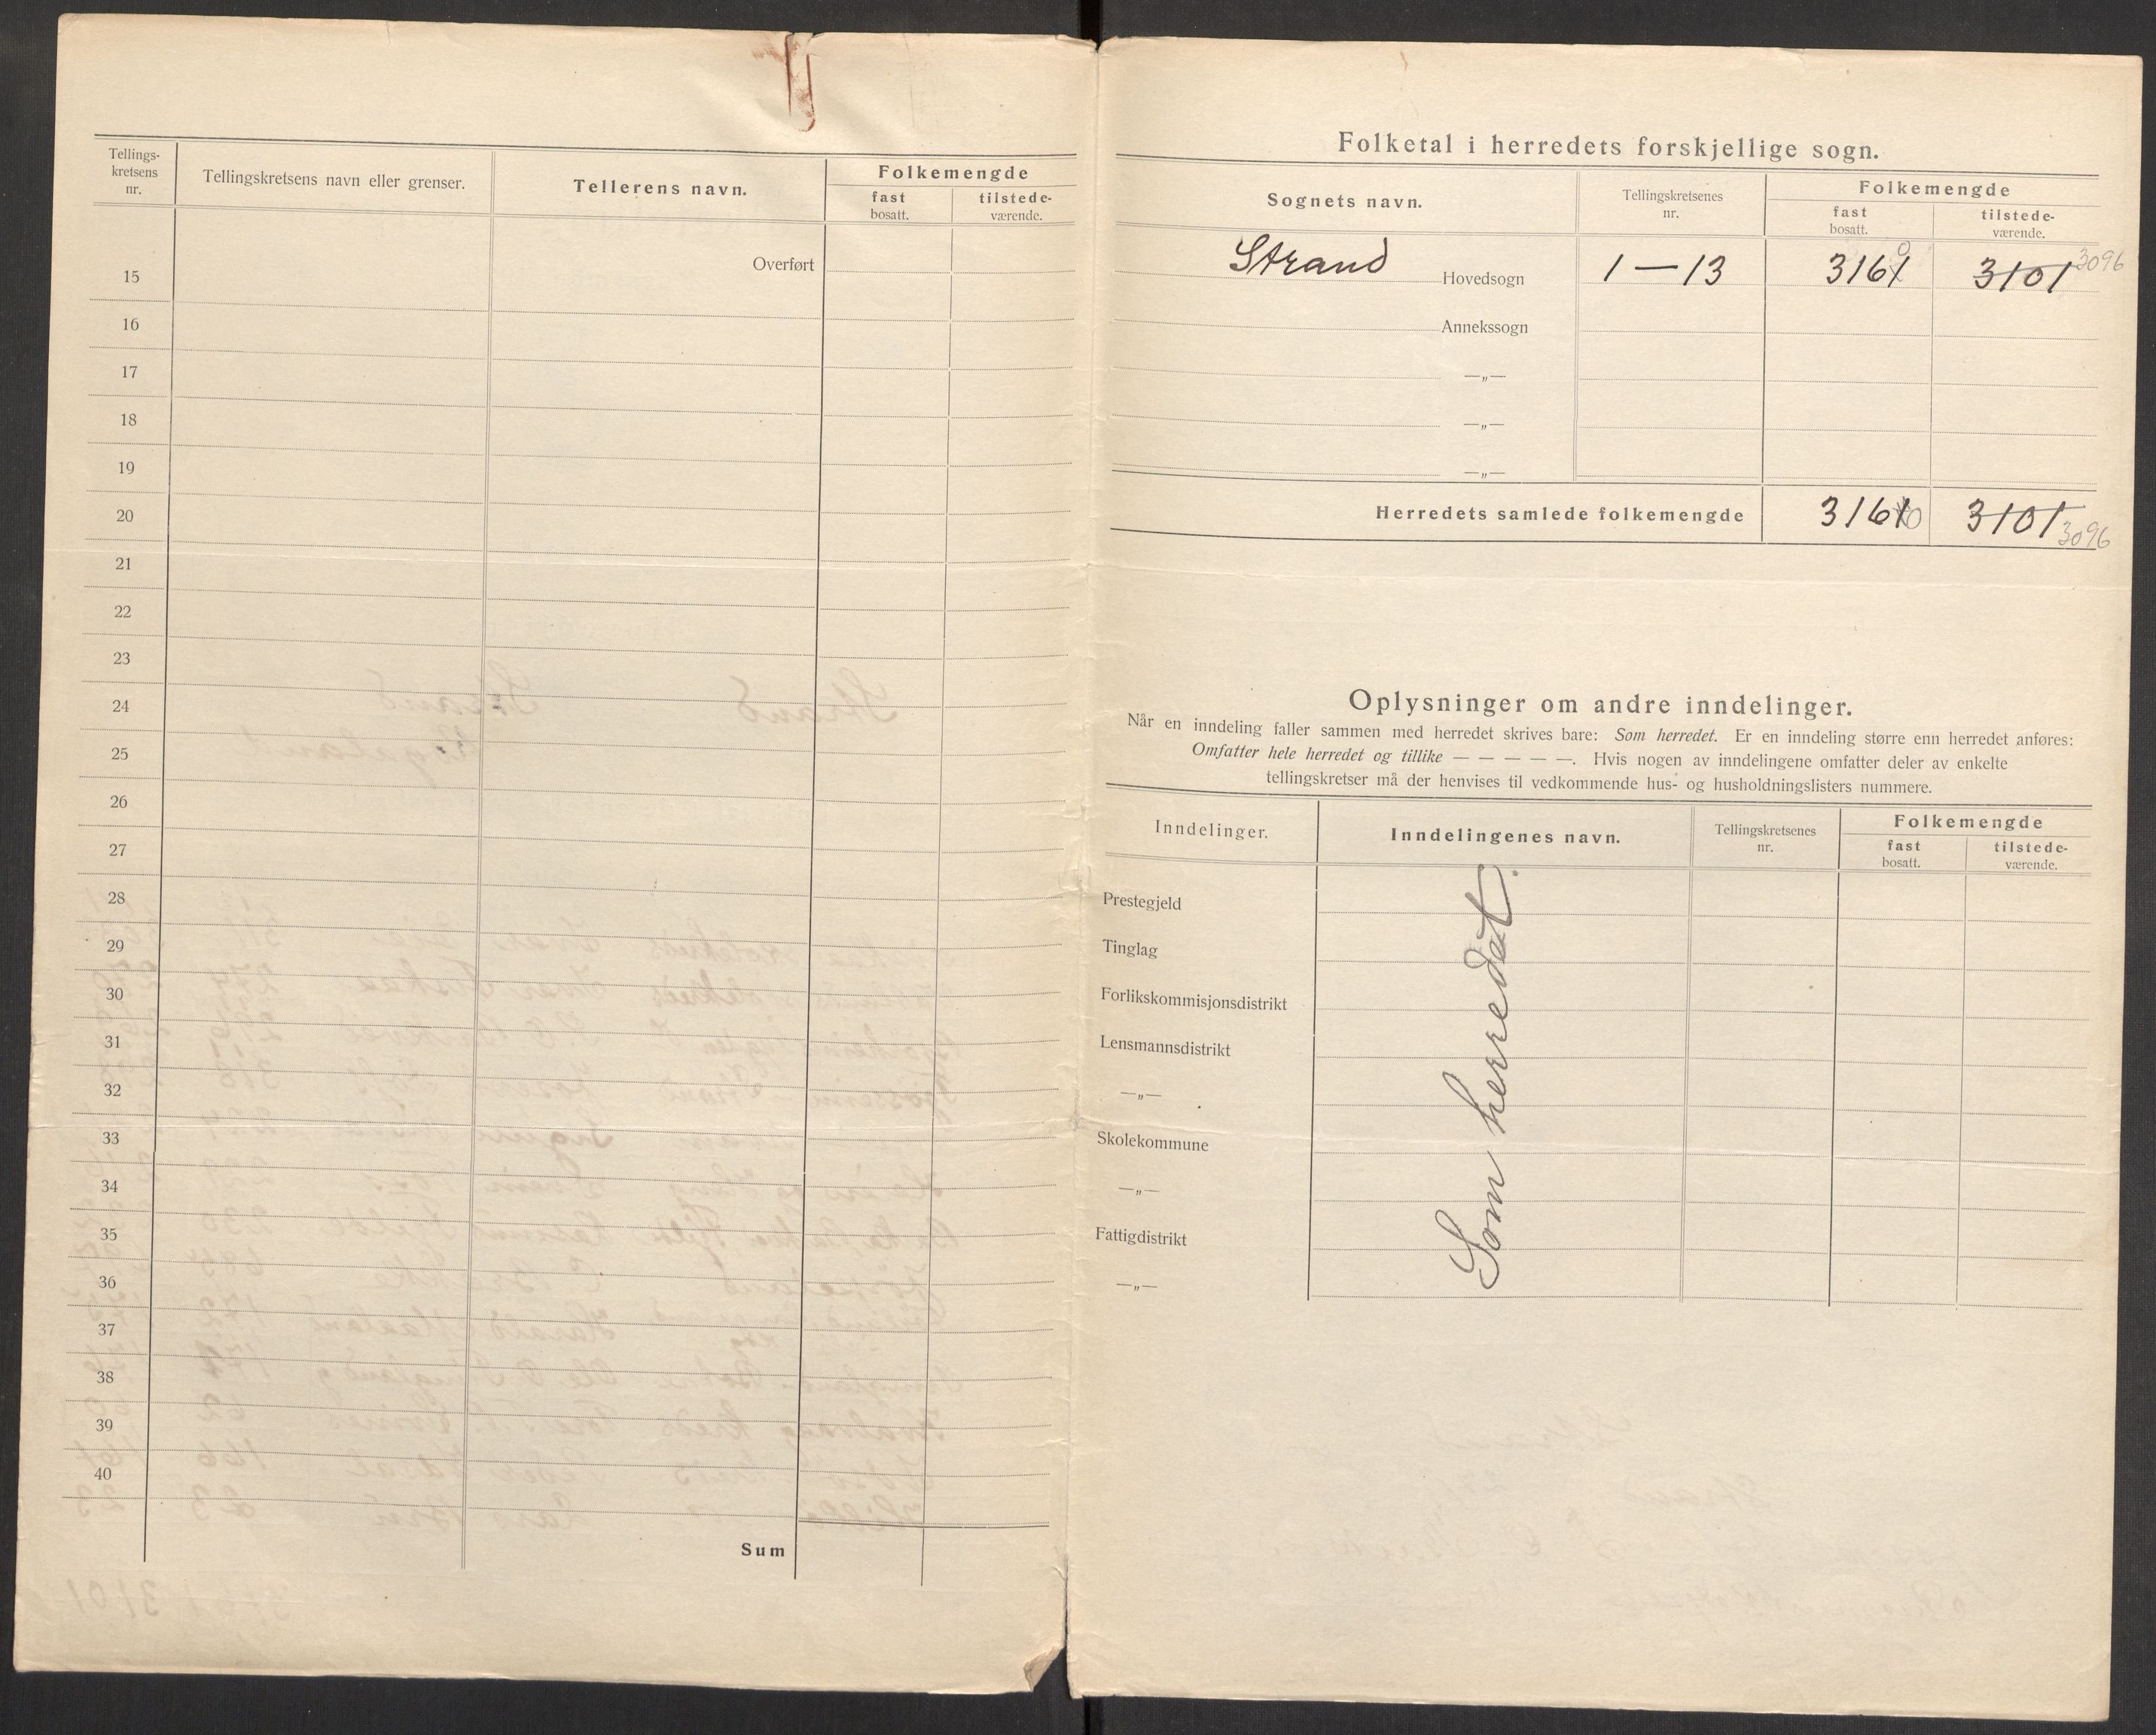 Tellings-
kretsens
nr.
Tellingskretsens navn eller grenser.
Tellerens navn.
Folkemengde
fast
bosatt.
tilstede-
værende.
Overført
15
16
17
18
19
20
21
22
23
24
25
26
27
28
29
30
31
32
33
34
35
36
37
38
39
40
Sum
Folketal i herredets forskjellige sogn.
Sognets navn.
Tellingskretsenes
nr.
Folkemengde
fast
bosatt.
tilstede-
værende.
Strand Hovedsogn 1 — 13 3161 0 3101 3096
Annekssogn
—„—
—„—
—„—
Herredets samlede folkemengde 3161 0 3101 3096
Oplysninger om andre inndelinger.
Når en inndeling faller sammen med herredet skrives bare: Som herredet. Er en inndeling større enn herredet anføres:
Omfatter hele herredet og tillike — — — — —. Hvis nogen av inndelingene omfatter deler av enkelte
tellingskretser må der henvises til vedkommende hus- og husholdningslisters nummere.
Inndelinger.
Inndelingenes navn.
Tellingskretsenes
nr.
Folkemengde
fast
bosatt.
tilstede-
værende.
Prestegjeld
Tinglag
Forlikskommisjonsdistrikt
Lensmannsdistrikt
—„—
Skolekommune
—„—
Fattigdistrikt
—„—
Som herredet.